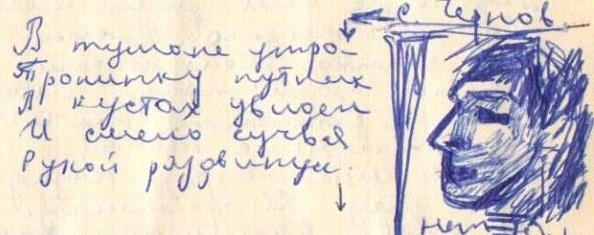 С. Чернов
В тумане утро-
Тропинку путник
кустах увидел
И смело сучья
Рукой раздвинул
нет